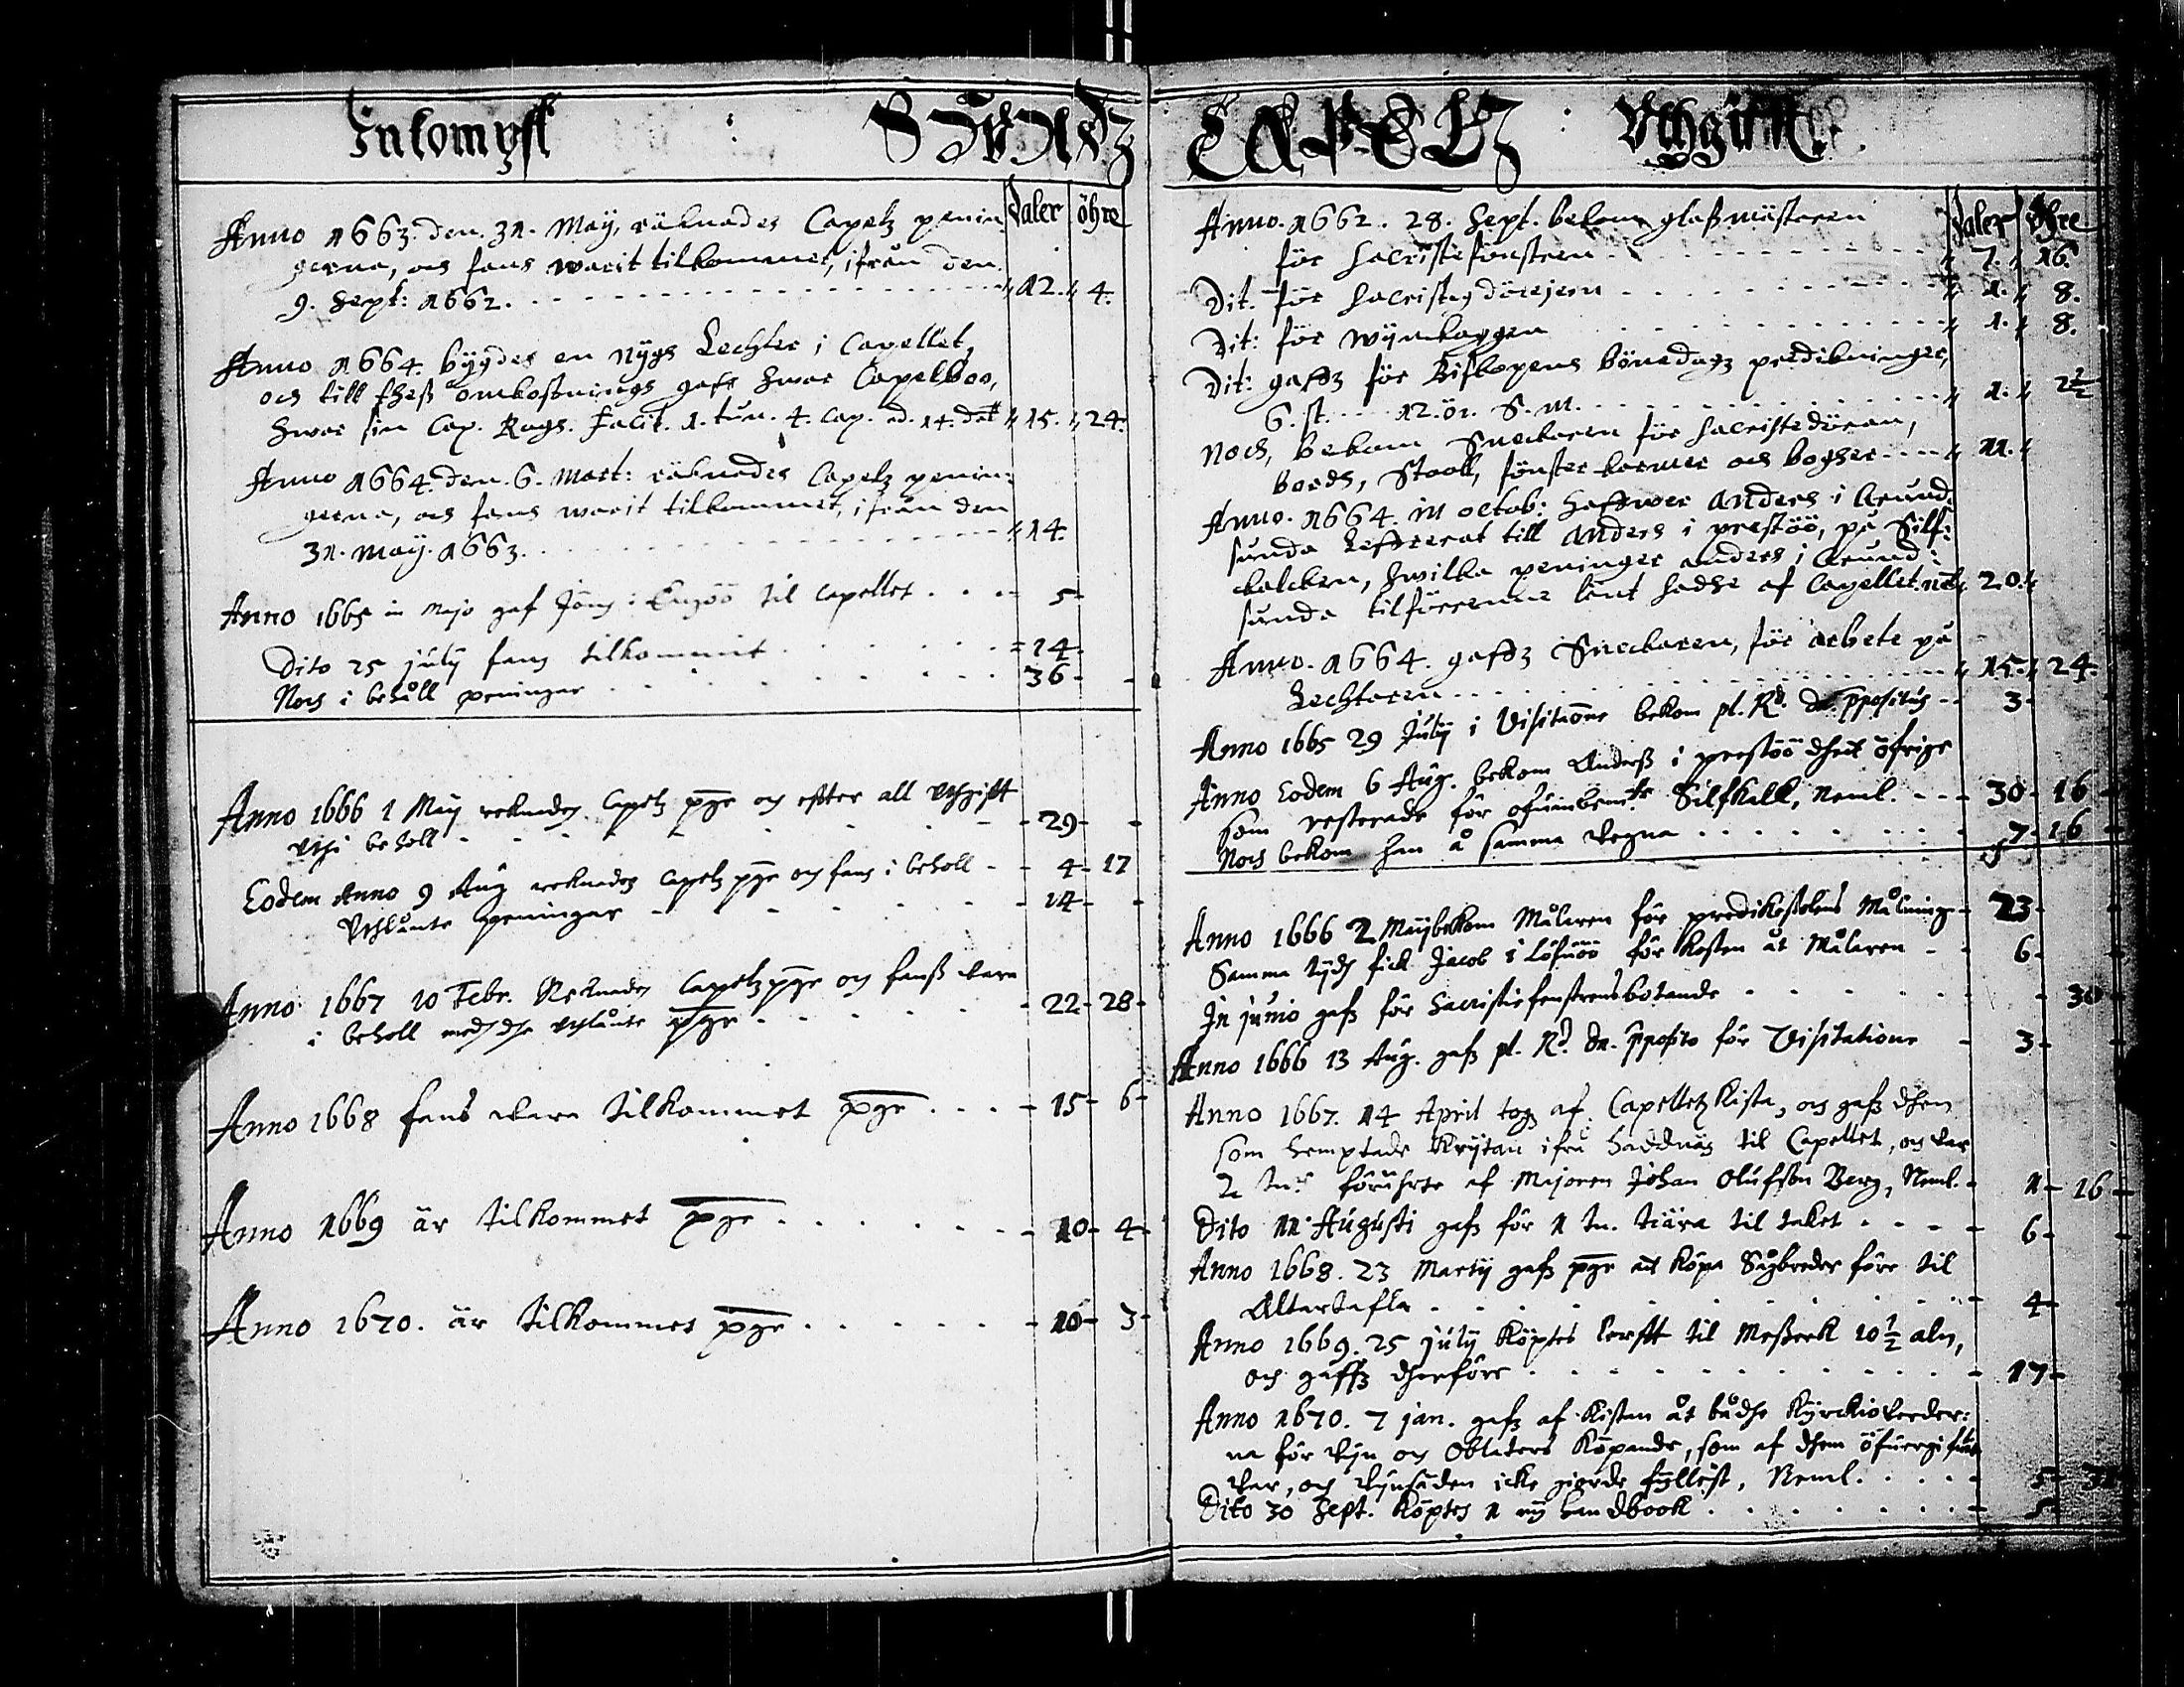 Inkompst : SÖRNDZ
Daler öhre
Anno 1663. den. 31. Maÿ, räknades Capelz penin
gerna, och fans warit tilkommet, ifrån den
9. Sept: 1662. 12. 4.
Anno 1664. bÿgdes en nÿgs Lechter i Capellet,
och till thess omkostnings gaff hwar Capelboo,
hwar sin Cap. Rogs. Facit. 1. tun. 4. Cap. 15. 24.
Anno 1664. den. 6. Mart: räknades Capelz penin:
gerna, och fans warit tilkommet, ifrån den
31. Maÿ. 1663. 14.
Anno 1665 in Majo gaf Jöns i til Capellet 5
Dito 25 julÿ fans tilkommit 14
Noch i behåll peningar 36
Anno 1666 1 Maÿ reknades Capelz pgr och efter all Uthgifft
Uthi behåll 29
Eodem Anno 9 Aug reknades Capelz pgr och fans i behåll 4 17
Uthlånte peningar 14
Anno 1667 10 Febr. Reknades Capelz pgr och fanss vara
i behåll medh dhe uthlånte pgr 22 28
Anno 1668 fans vara tilkommet pgr 15 6
Anno 1669 är tilkommet pgr 10 4
Anno 1670. är tilkommet pgr 10 3
CAPELZ : Uthgifft.
Daler öhre
Anno. 1662. 28. Sept. bekom glassmästaren
för Sacristifönstren 7. 16.
Dit. för Sacristigdörejern 1. 8.
Dit: för wÿnkaggen 1. 8.
Dit: gaffz för Biskopens bönedagz predikninger,
6. st. 12. ör. S. M. 1. 2½
Noch, bekom Sneckaren för Sacristedören,
bordh, Stooll, fönster karmer och bogher 11.
Anno. 1664. in octob: haffwer Anders i Arund:
sunda leffrerat till Anders i prestöö, på Silf:
kalcken, hwilka peninger Anders i Arund:
sunda tilförenne lånt hadhe af Capellet. 20.
Anno. 1664. gaffz Sneckaren, för arbete på
Lechteren 15. 24.
Anno 1665 29 Julÿ i Visitatione bekom pl. Rd. dn. ppositus 3
Anno Eodem 6 Aug. bekom Anderss i prestöö dhet öfrige
som resterade för Silfkalk, Neml. 30 16
Noch bekom han å samma vegna 7 16
Anno 1666 2 Maÿ bekom Målaren för predikestolens Målning 23
Samma tÿdh fick Jacob i Löfnöö för kosten åt Målaren 6
In junio gafz för Sacristiefenstrens botande 30
Anno 1666 13 Aug. gafz pl. Rd. dn. pposito för Visitatione 3
Anno 1667. 14 April togz af Capelletz kista, och gafz dhem
som hemptade krÿtan ifrå Haddnäs til Capellet, och var
2 förährte af Majoren Johan Olufson Berg, Neml. 1 16
Dito 11 Augusti gafz för 1 tn. tiära til taket 6
Anno 1668. 23 Martÿ gafz pgr at köpa Sågbreder före til
Altartafla 4
Anno 1669. 25 julÿ köptes lerfft til Messerk 10½ aln,
och gaffz dherföre 17
Anno 1670. 7 jan. gafz af kistan åt bådhe Kÿrckioverder:
na för vÿn och Oblaters köpande, som af dhem
var, och vÿnsäden icke giorde fyllest, Neml. 5
Dito 30 Sept. köptes 1 nÿ handbook 5